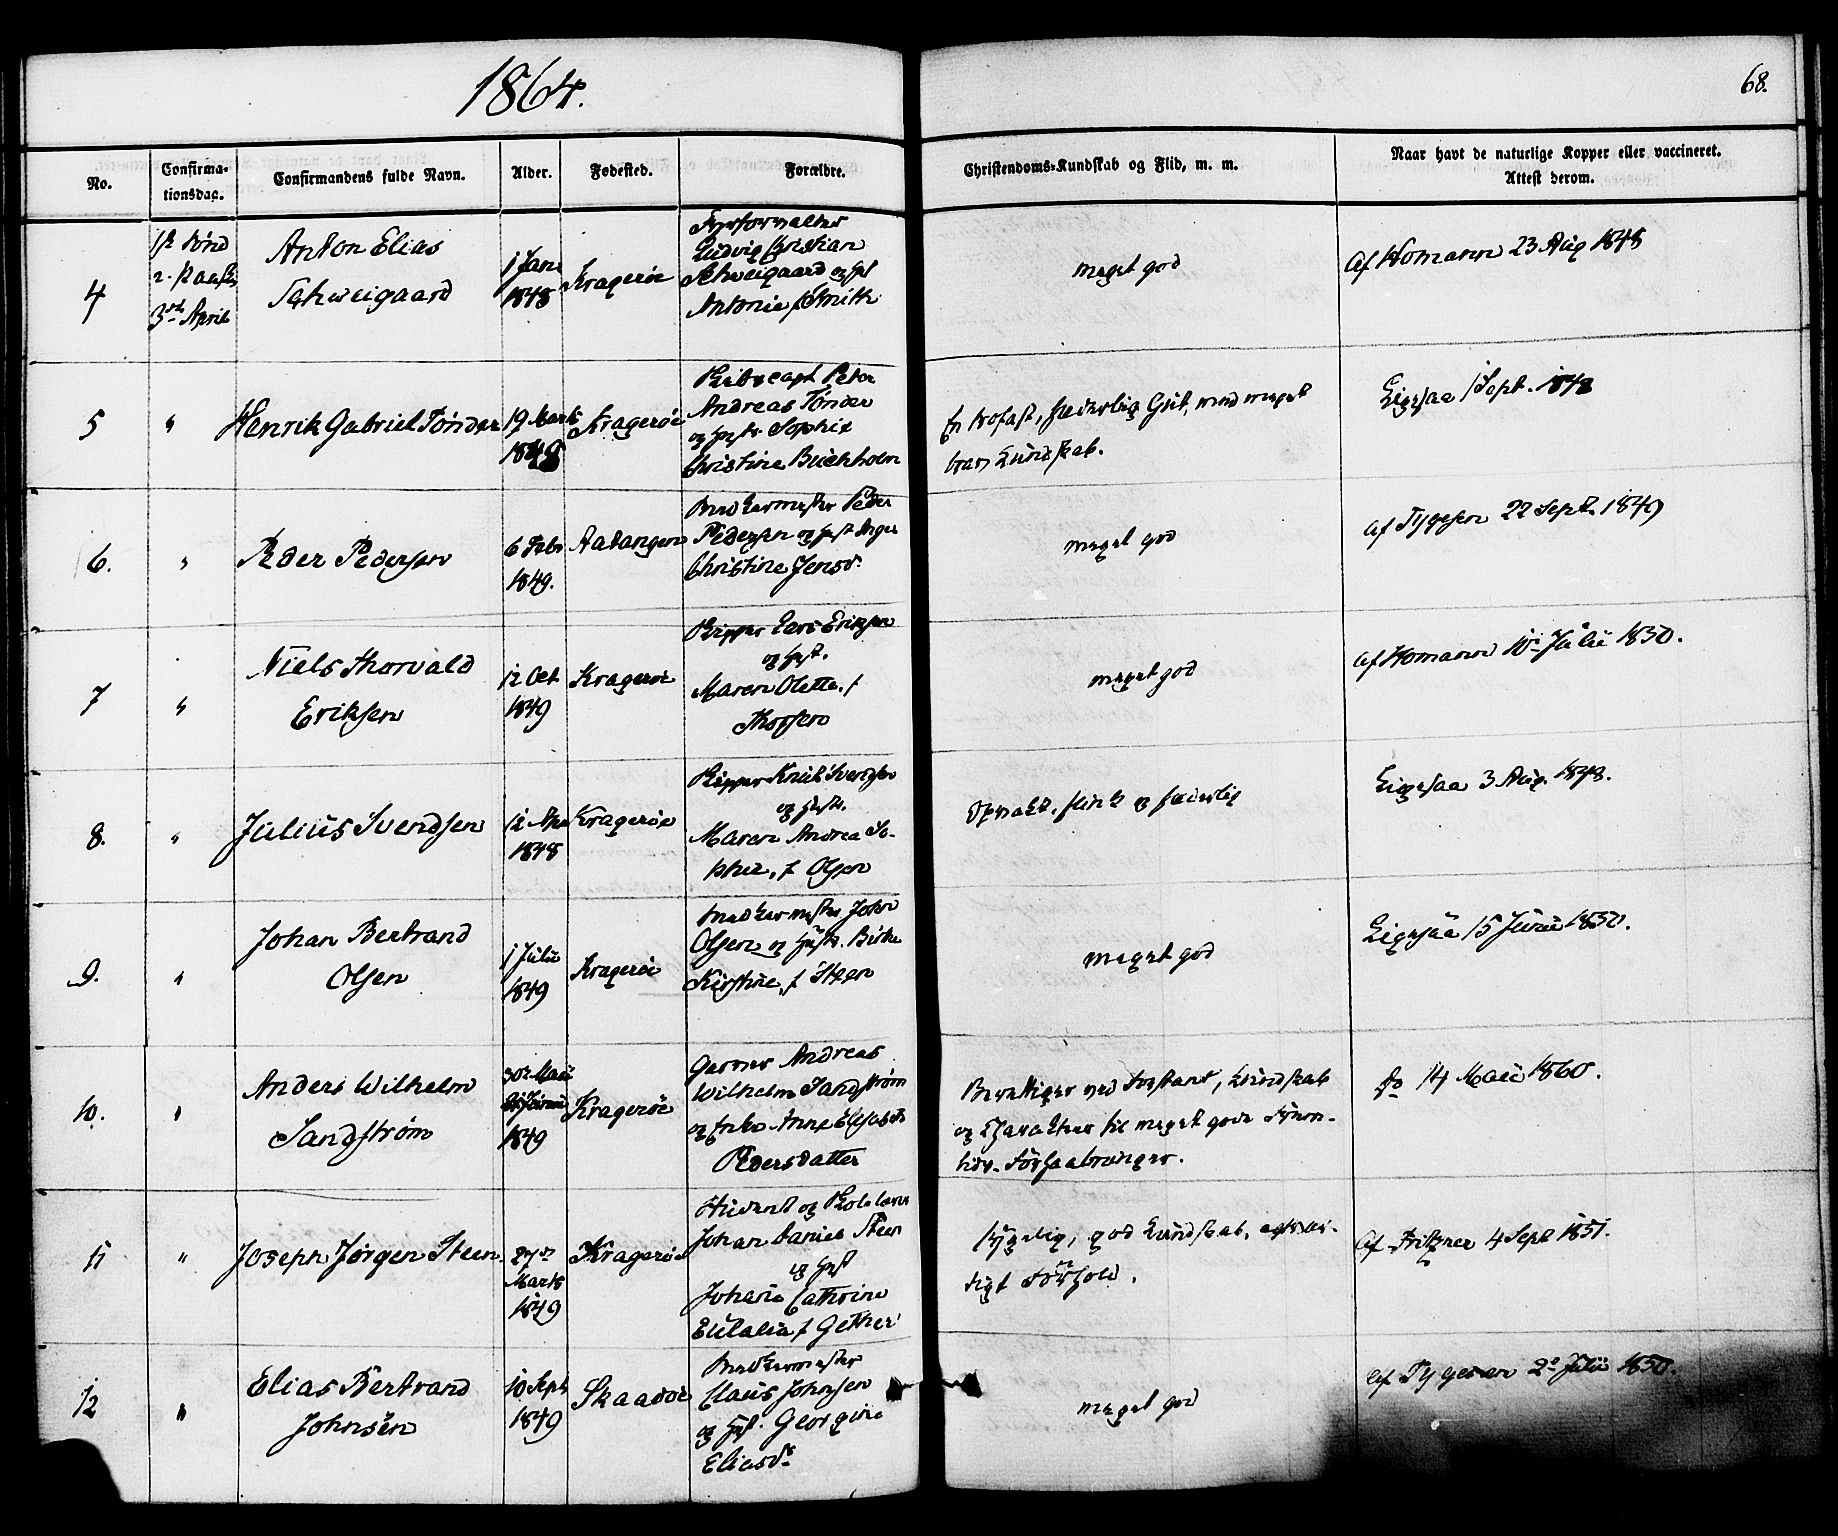 1864.
68.
No.
Confirma-
tionsdag.
Confirmandens fulde Navn.
Alder.
Fødested.
Forældre.
Christendoms-Kundskab og Flid, m. m.
Naar havt de naturlige Kopper eller vaccineret.
Attest derom.
4
3die April
Anton Elias
Schweigaard
1 Jan
1848
Kragerøe
Ludvig Christian
Schweigaard og
Antonie f Smith
meget god
af Homann 23 Aug 1848
5
"
Henrik Gabriel Tønder
19 Marts
1849
Kragerøe
Peter
Andreas Tønder
og Sophie
Christine Buchholm
meget
Kundskab.
Ligesaa 1 Sept. 1848
6.
"
Peder Pedersen
6 Febr
1849.
Aatangen
Peder
Pedersen og Hust Inger
Christine Jensd.
meget god
af Tygesen 22 Sept. 1849
7
"
Niels Thorvald
Eriksen
12 Oct
1849
Kragerøe
Skipper Lars Eriksen
og Hust.
Maren Olette, f
Thorsen
meget god
af Homann Juli 1850.
8.
"
Julius Svendsen
12
1848
Kragerøe
Skipper Knud Svendsen
og Hustr.
Maren Andrea So-
phie, f Olsen
flink og
Ligesaa 3 Aug. 1848.
9.
"
Johan Bertrand
Olsen
1 Juli
1849
Kragerøe
John
Olsen og Hustr.
Kirstine, f Steen
meget god
Ligesaa 15 Juni 1850.
10.
"
Anders Wilhelm
Sandstrøm
1849
Kragerøe
Garver Andreas
Wilhelm Sandstrøm
og Enke Anne Elisabeth
Pedersdatter
Berettiger ved Forstand, Kundskab
og Charakteer til meget gode Frem-
tids-Forhaabninger.
do 14 Mai 1860.
11
"
Joseph Jørgen Steen.
27de
Marts
1849
Kragerøe
Student og Skolelærer
Johan Daniel Steen
og Hust
Johanne Cathrine
Eulalia f Gether
god Kundskab,
digt Forhold.
af Fritzner 4 Sept 1851.
12
"
Elias Bertrand
Johnsen
10 Sept
1849
Skaadøe
Claus Johnsen
og Hust. Georgine
Eliasdr
meget god
af Tygesen 2 Juli 1850.